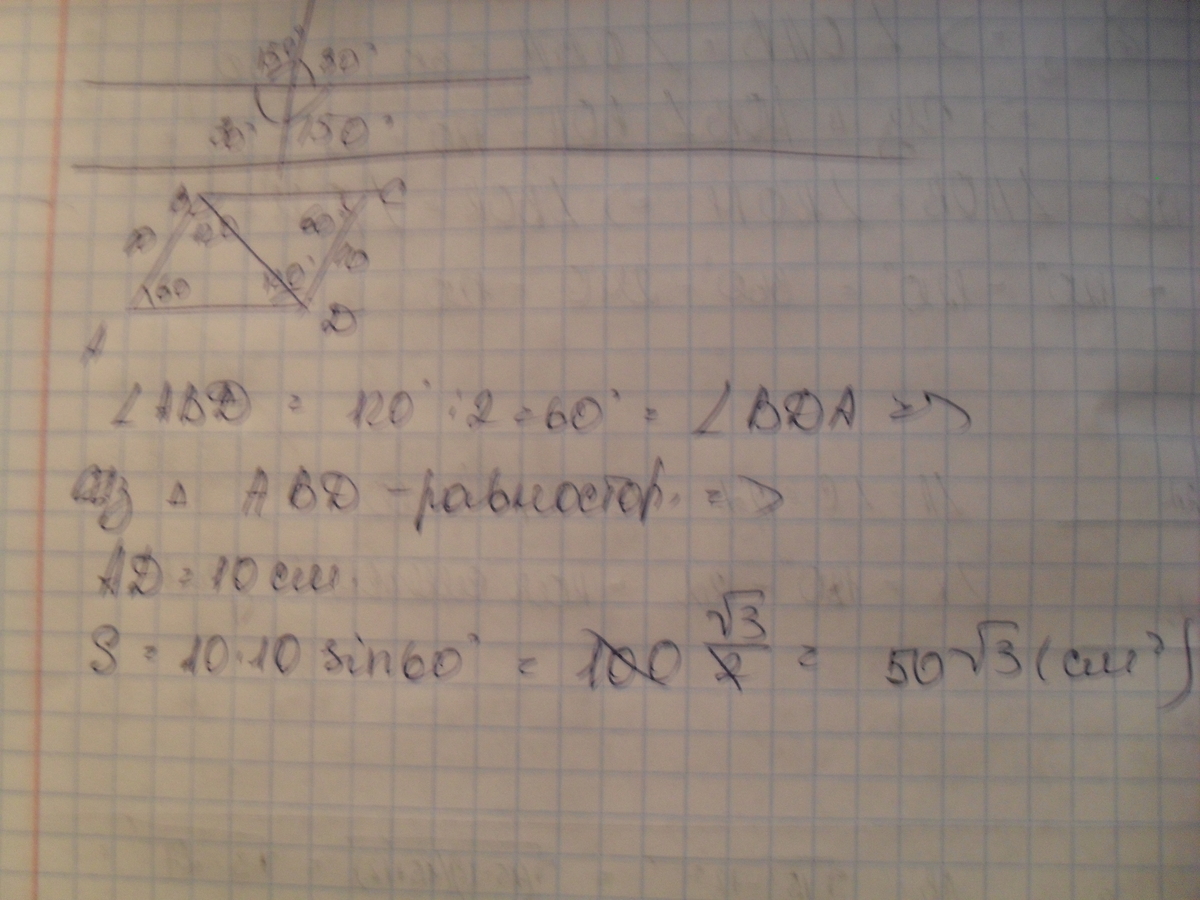 150° 30°
30° 150°
B C
10 60 60° 10
60 120°
A D
∠ABD = 120° : 2 = 60° = ∠BDA =>
△ ABD - равностор. =>
AD = 10 см.
S = 10·10 sin60° = 100 √3/2 = 50√3 (см²)